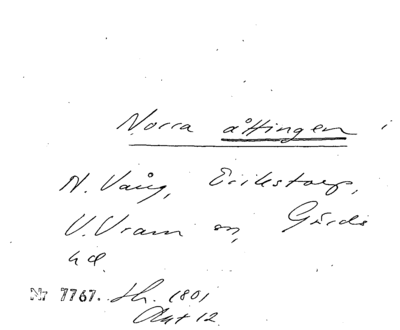 Norra åttingen i
N. Vång, Erikstorp,
V. Vram o, Gärds
hd.
Nr 7767. Lh. 1801
Okt 12